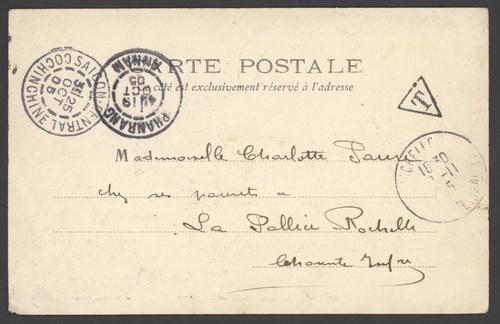 CARTE POSTALE
Ce côté est exclusivement réservé à l'adresse
SAIGON-CENTRAL
COCHINCHINE
25
OCT
05
PHANRANG
ANNAM
19
OCT
05
T
18 30
11
Mademoiselle Charlotte
chez ses parents à
La Pallice Rochelle
Charente Infre